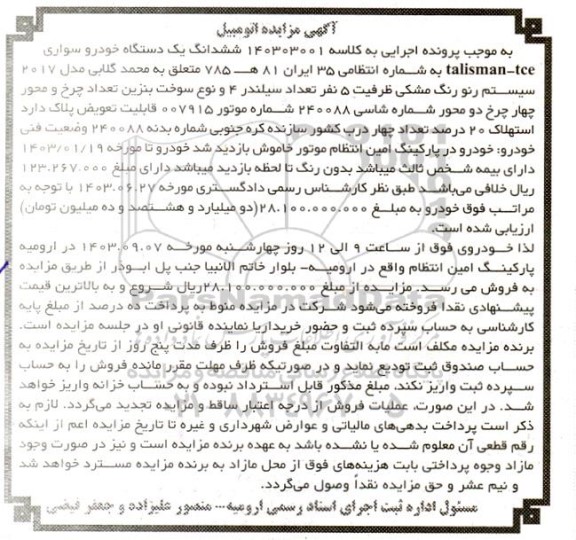 آگهی مزایده اتومبیل
به موجب پرونده اجرایی به کلاسه ۱۴۰۳۰۳۰۰۱ ششدانگ یک دستگاه خودرو سواری
talisman-tce به شماره انتظامی ۳۵ ایران ۸۱ هـ ۷۸۵ متعلق به محمد گلابی مدل ۲۰۱۷
سیستم رنو رنگ مشکی ظرفیت ۵ نفر تعداد سیلندر ۴ و نوع سوخت بنزین تعداد چرخ و محور
چهار چرخ دو محور شماره شاسی ۲۴۰۰۸۸ شماره موتور ۰۰۷۹۱۵ قابلیت تعویض پلاک دارد
استهلاک ۲۰ درصد تعداد چهار درب کشور سازنده کره جنوبی شماره بدنه ۲۴۰۰۸۸ وضعیت فنی
خودرو: خودرو در پارکینگ امین انتظام موتور خاموش بازدید شد خودرو تا مورخه ۱۴۰۳/۰۱/۱۹
دارای بیمه شخص ثالث میباشد بدون رنگ تا لحظه بازدید میباشد دارای مبلغ ۱۲۳.۲۶۷.۰۰۰
ریال خلافی می‌باشد طبق نظر کارشناس رسمی دادگستری مورخه ۱۴۰۳.۰۶.۲۷ با توجه به
مراتب فوق خودرو به مبلغ ۲۸.۱۰۰.۰۰۰.۰۰۰(دو میلیارد و هشتصد و ده میلیون تومان)
ارزیابی شده است.
لذا خودروی فوق از ساعت ۹ الی ۱۲ روز چهارشنبه مورخه ۱۴۰۳.۰۹.۰۷ در ارومیه
پارکینگ امین انتظام واقع در ارومیه- بلوار خاتم الانبیا جنب پل ابوذر از طریق مزایده
به فروش می رسد. مزایده از مبلغ ۲۸.۱۰۰.۰۰۰.۰۰۰ریال شروع و به بالاترین قیمت
پیشنهادی نقدا فروخته می‌شود شرکت در مزایده منوط به پرداخت ده درصد از مبلغ پایه
کارشناسی به حساب سپرده ثبت و حضور خریدار یا نماینده قانونی او در جلسه مزایده است.
برنده مزایده مکلف است مابه التفاوت مبلغ فروش را ظرف مدت پنج روز از تاریخ مزایده به
حساب صندوق ثبت تودیع نماید و در صورتیکه ظرف مهلت مقرر مانده فروش را به حساب
سپرده ثبت واریز نکند، مبلغ مذکور قابل استرداد نبوده و به حساب خزانه واریز خواهد
شد. در این صورت، عملیات فروش از درجه اعتبار ساقط و مزایده تجدید می‌گردد. لازم به
ذکر است پرداخت بدهی‌های مالیاتی و عوارض شهرداری و غیره تا تاریخ مزایده اعم از اینکه
رقم قطعی آن معلوم شده یا نشده باشد به عهده برنده مزایده است و نیز در صورت وجود
مازاد وجوه پرداختی بابت هزینه‌های فوق از محل مازاد به برنده مزایده مسترد خواهد شد
و نیم عشر و حق مزایده نقداً وصول می‌گردد.
مسئول اداره ثبت اجرای اسناد رسمی ارومیه... منصور علیزاده و جعفر فیضی
ParsNamadData